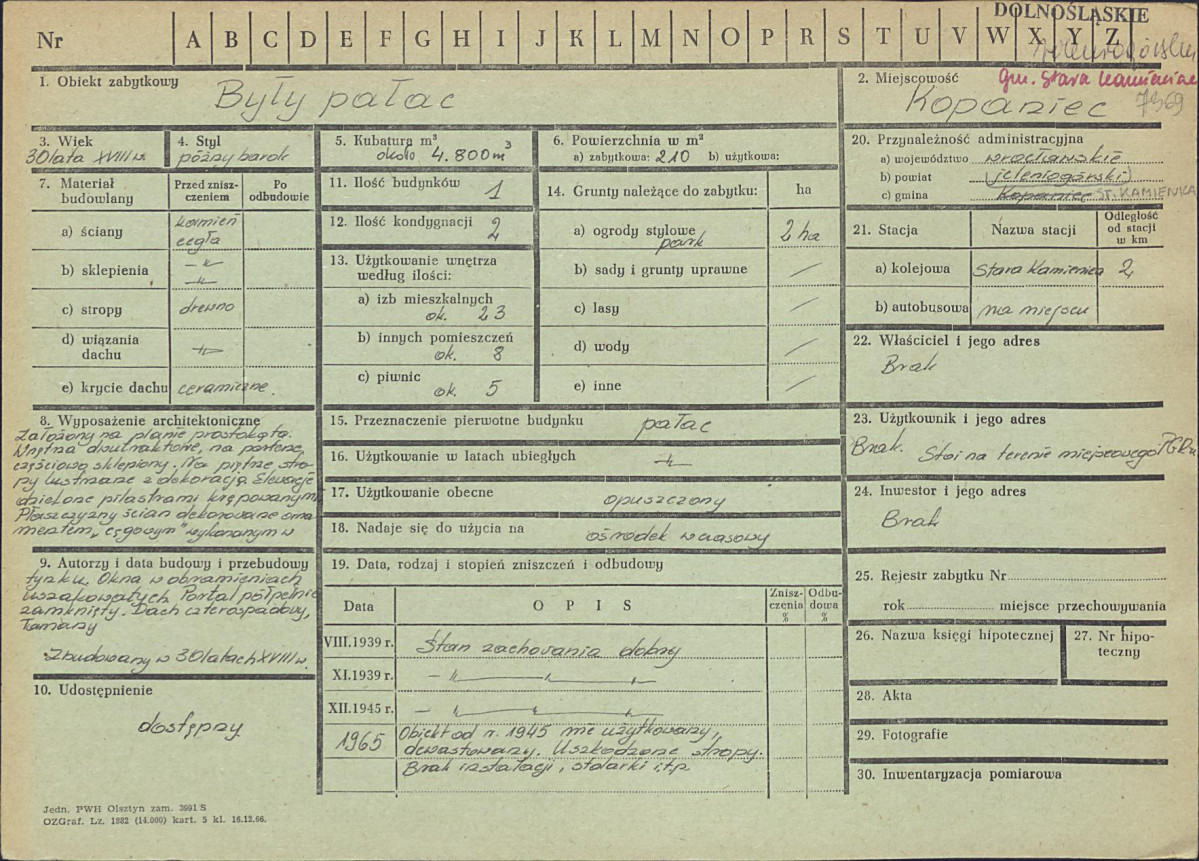 DOLNOŚLĄSKIE
Nr A B C D E F G H I J K L M N O P R S T U V W X Y Z
1. Obiekt zabytkowy
Były pałac
2. Miejscowość gm. Stara Kamienica
Kopaniec 7369
3. Wiek
30 lata XVIII w.
4. Styl
późny barok
5. Kubatura m³
około 4.800 m³
6. Powierzchnia w m²
a) zabytkowa: 210 b) użytkowa:
7. Materiał budowlany
Przed zniszczeniem
Po odbudowie
a) ściany kamień cegła
b) sklepienia -"- -"-
c) stropy drewno
d) wiązania dachu -"-
e) krycie dachu ceramiczne.
8. Wyposażenie architektoniczne
Założony na planie prostokąta.
Wnętrza dwutraktowe, na parterze,
częściowo sklepiony. Na piętrze stro-
py lustrzane z dekoracją. Elewacje
dzielone pilastrami krępowanymi
Płaszczyzny ścian dekorowane orna
mentem „cęgowym" wykonanym w
9. Autorzy i data budowy i przebudowy
tynku. Okna w obramieniach
uszakowatych. Portal półpełnie
zamknięty. Dach czterospadowy,
łamany
Zbudowany w 30 latach XVIII w.
10. Udostępnienie
dostępny
11. Ilość budynków 1
12. Ilość kondygnacji 2
13. Użytkowanie wnętrza
według ilości:
a) izb mieszkalnych
ok. 23
b) innych pomieszczeń
ok. 8
c) piwnic
ok. 5
14. Grunty należące do zabytku: ha
a) ogrody stylowe
park 2 ha
b) sady i grunty uprawne /
c) lasy /
d) wody /
e) inne /
15. Przeznaczenie pierwotne budynku pałac
16. Użytkowanie w latach ubiegłych -"-
17. Użytkowanie obecne opuszczony
18. Nadaje się do użycia na ośrodek wczasowy
19. Data, rodzaj i stopień zniszczeń i odbudowy
Data OPIS Zniszczenia % Odbudowa %
VIII.1939 r. Stan zachowania dobry
XI.1939 r. - " - " - " -
XII.1945 r. - " - " - " -
1965 Obiekt od r. 1945 nie użytkowany,
dewastowany. Uszkodzone stropy.
Brak instalacji, stolarki itp
20. Przynależność administracyjna
a) województwo wrocławskie
b) powiat (jeleniogórski)
c) gmina Kopaniec ST. KAMIENICA
21. Stacja Nazwa stacji Odległość od stacji w km
a) kolejowa Stara Kamienica 2
b) autobusowa na miejscu
22. Właściciel i jego adres
Brak
23. Użytkownik i jego adres
Brak. Stoi na terenie miejscowego PGRu
24. Inwestor i jego adres
Brak
25. Rejestr zabytku Nr
rok miejsce przechowywania
26. Nazwa księgi hipotecznej
27. Nr hipoteczny
28. Akta
29. Fotografie
30. Inwentaryzacja pomiarowa
Jedn. PWH Olsztyn zam. 3991 S
OZGraf. Lz. 1882 (14.000) kart. 5 kl. 16.12.66.